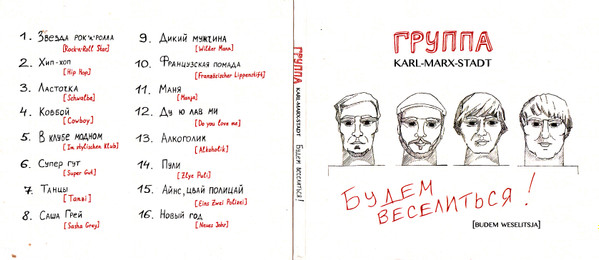 1. Звезда рок'н'ролла
[Rock'n'Roll Star]
2. Хип-хоп
[Hip Hop]
3. Ласточка
[Schwalbe]
4. Ковбой
[Cowboy]
5. В клубе модном
[Im stylischen Klub]
6. Супер гут
[Super Gut]
7. Танцы
[Tanzi]
8. Саша Грей
[Sasha Grey]
9. Дикий мужчина
[Wilder Mann]
10. Французская помада
[Französischer Lippenstift]
11. Маня
[Manja]
12. Ду ю лав ми
[Do you love me]
13. Алкоголик
[Alkoholik]
14. Пули
[Zlye Puli]
15. Айнс, цвай полицай
[Eins Zwei Polizei]
16. Новый год
[Neues Jahr]
ГРУППА KARL-MARX-STADT БУДЕМ ВЕСЕЛИТЬСЯ!
ГРУППА
KARL-MARX-STADT
БУДЕМ
ВЕСЕЛИТЬСЯ!
[BUDEM WESELITSJA]